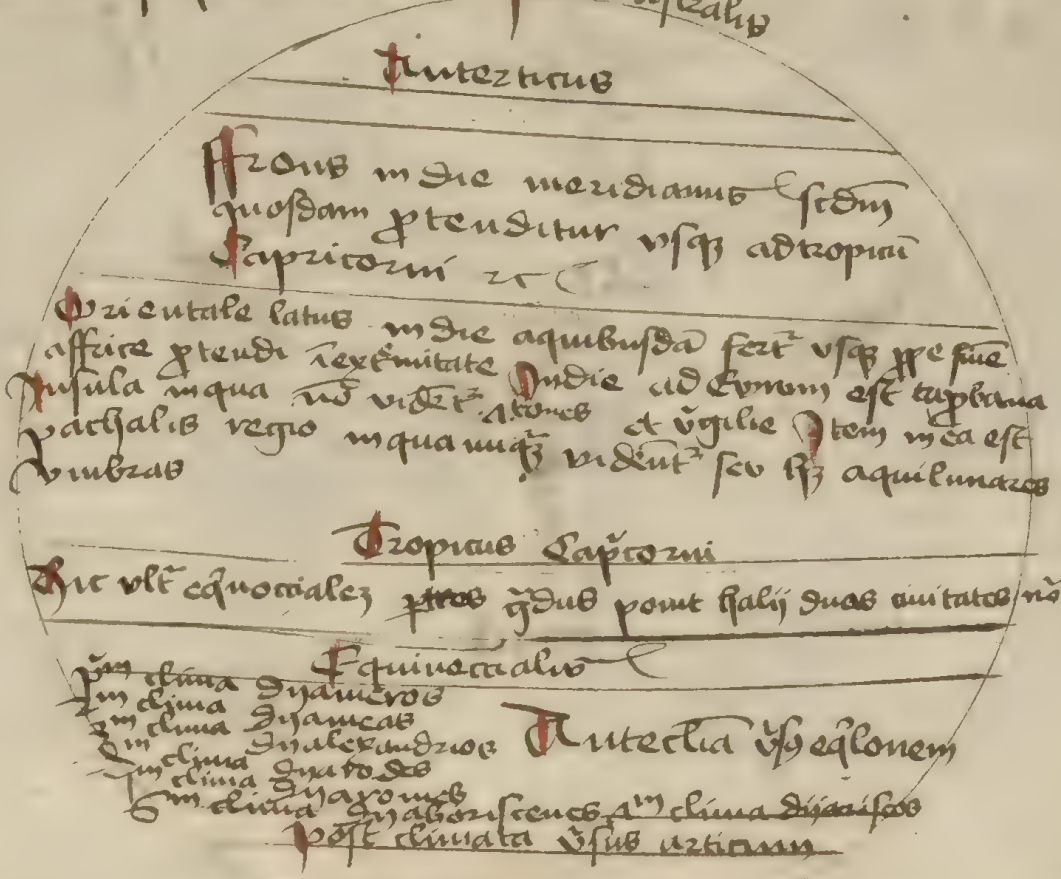 australis
Anterticus
Frons indie meridianus scdm
quosdam ptenditur vsqz ad tropicū
Capricorni rc
Orientale latus indie aquibusdā fert vsqz ppe fine
affrice ptendi ī extmitate Indie ad Eurum est taprbana
Insula in qua nō vident et vgilie Item in ea est
pathalis regio in qua nuqz vident seu hz aquilunares
Vmbras
Tropicus Capcorni
Hic vlt eqnoccialez ptres gdus ponit halij duas ciuitates
Equinoccialis
pm clima dyameros
2m clima dyaneas
3m clima dyalexandrios
Anteclia vsus eqlonem
4m clima dyarodes
5m clima dyaromes
6m clima dyaboristenes 7m clima
post climata vsus articum